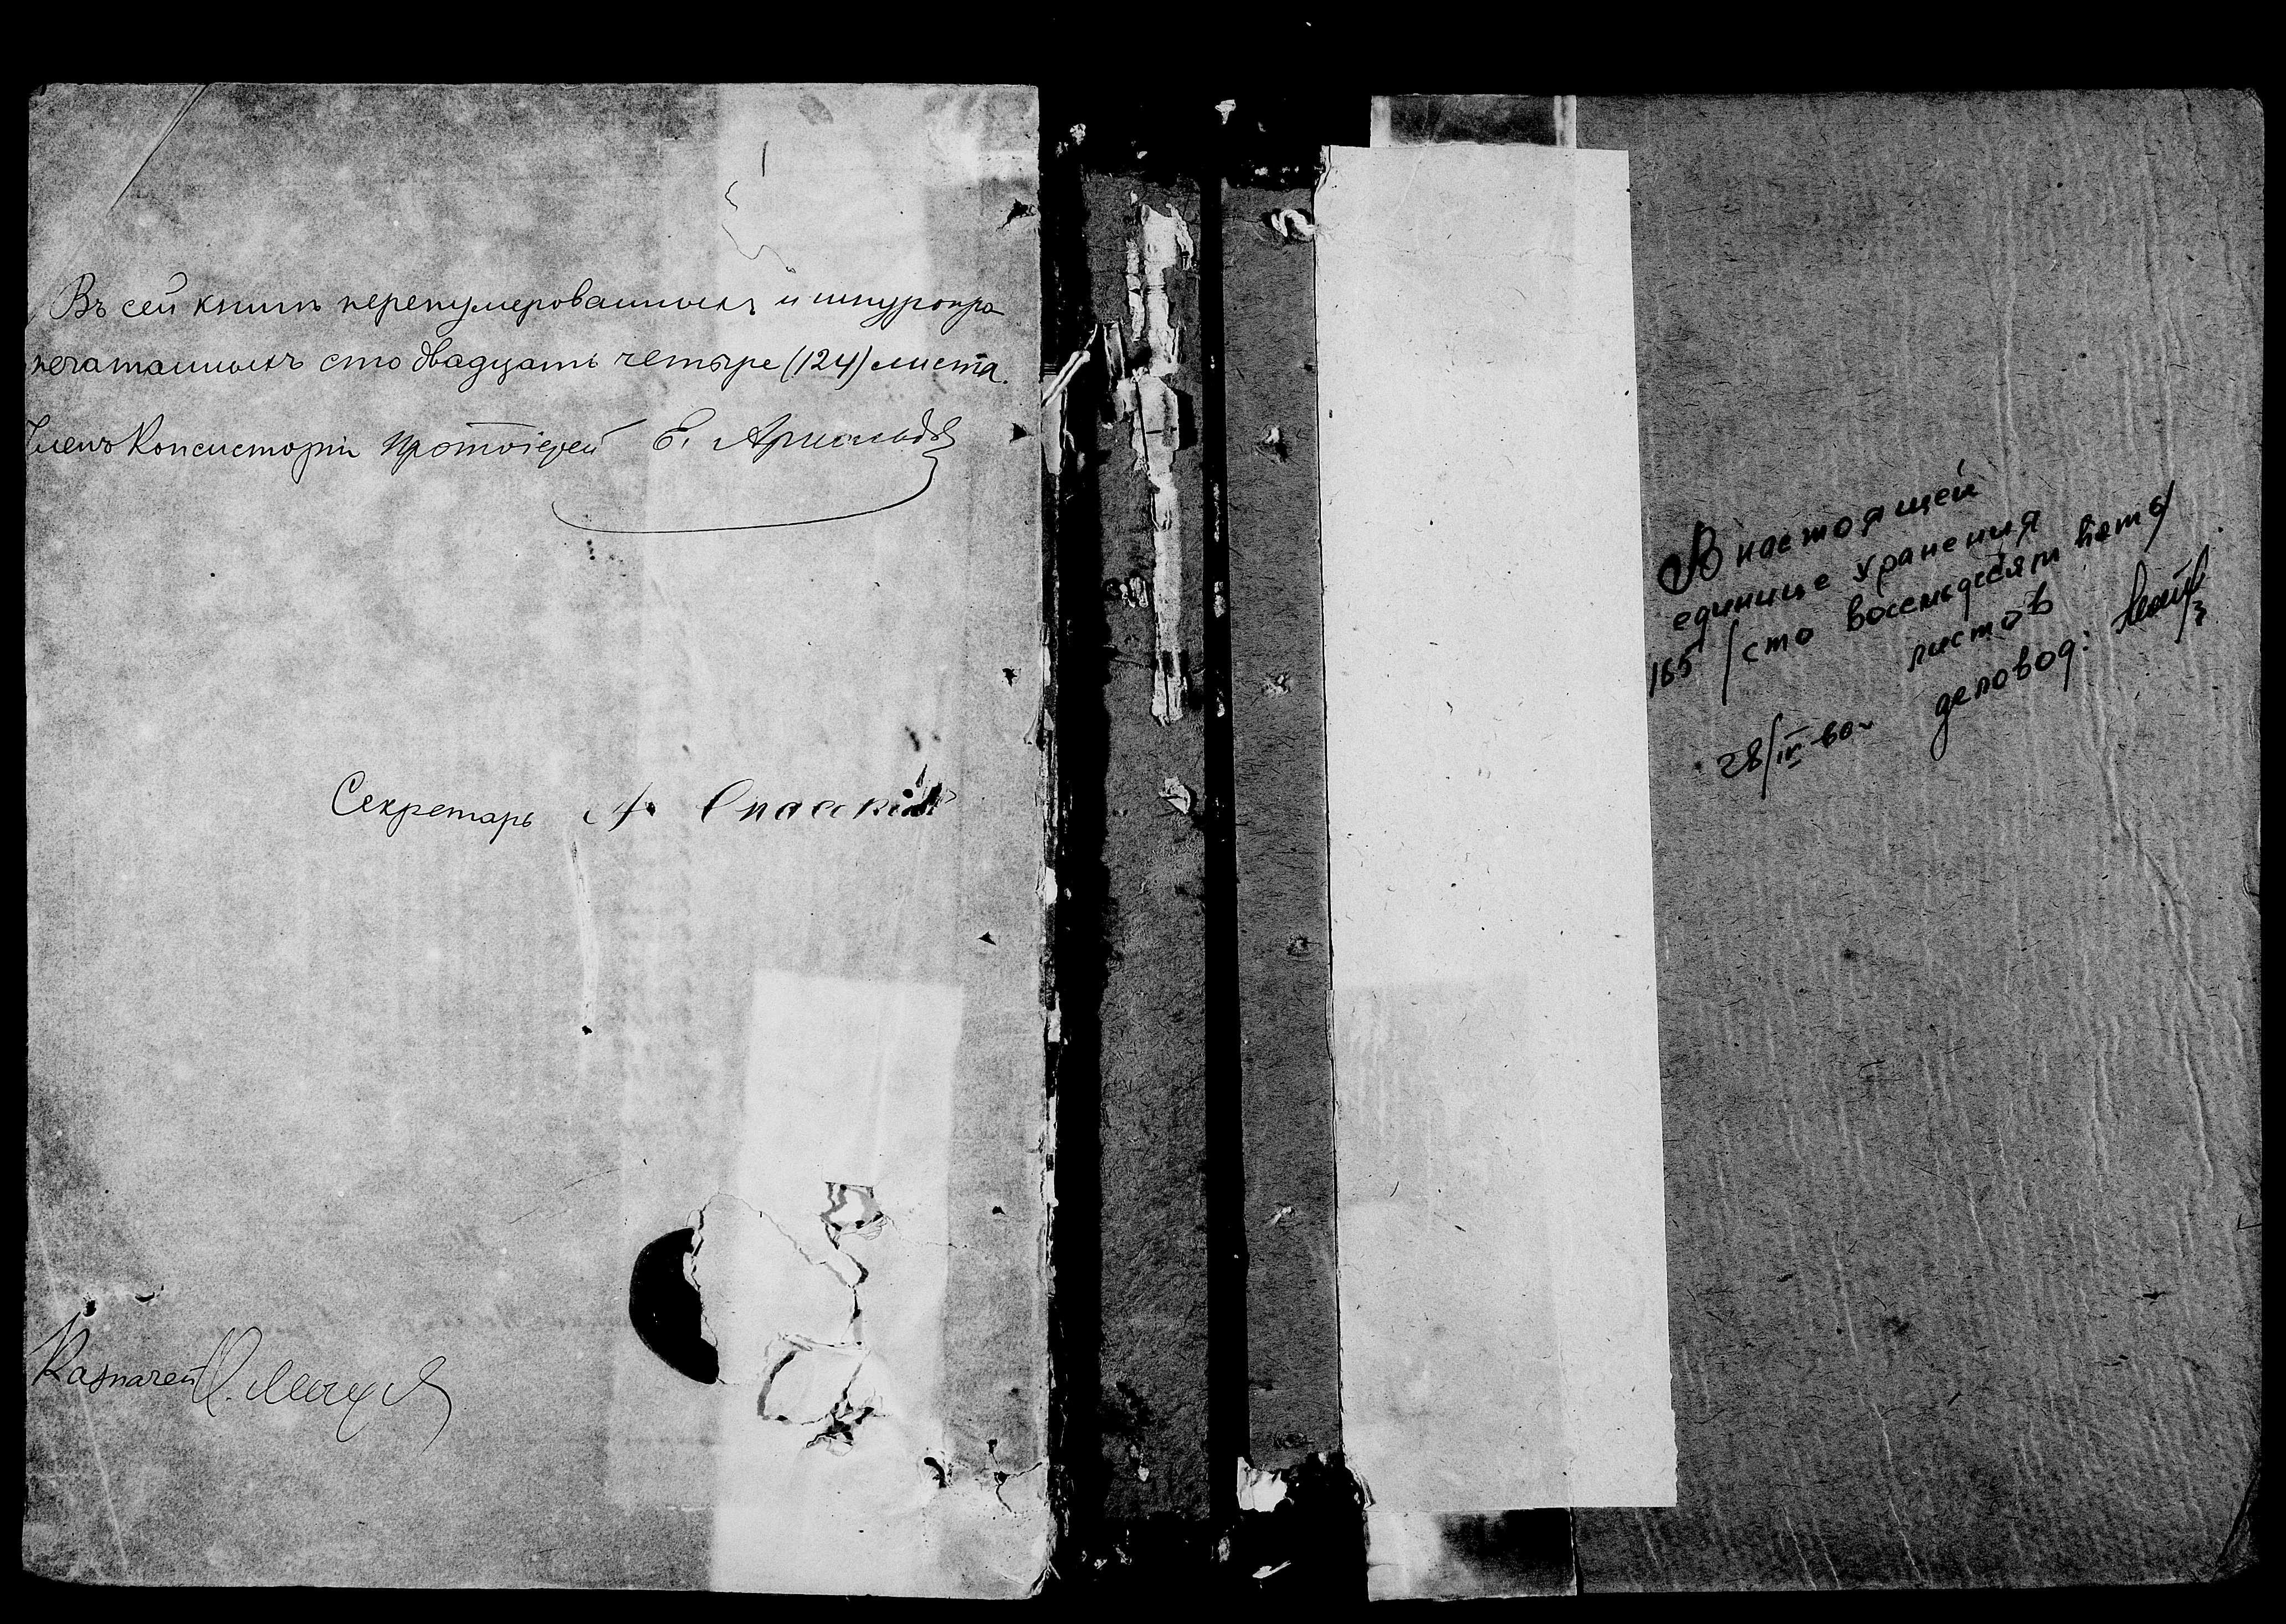 Въ сей книгѣ перенумерованныхъ и шнуропро
печатанныхъ сто двадцать четыре (124) листа.
Членъ Консисторіи Протоіерей Е.
Секретарь А. Спасскій
Казначей
В настоящей
единице хранения
185 /сто восемьдесят пять/
листов
28/IV-60г деловод: